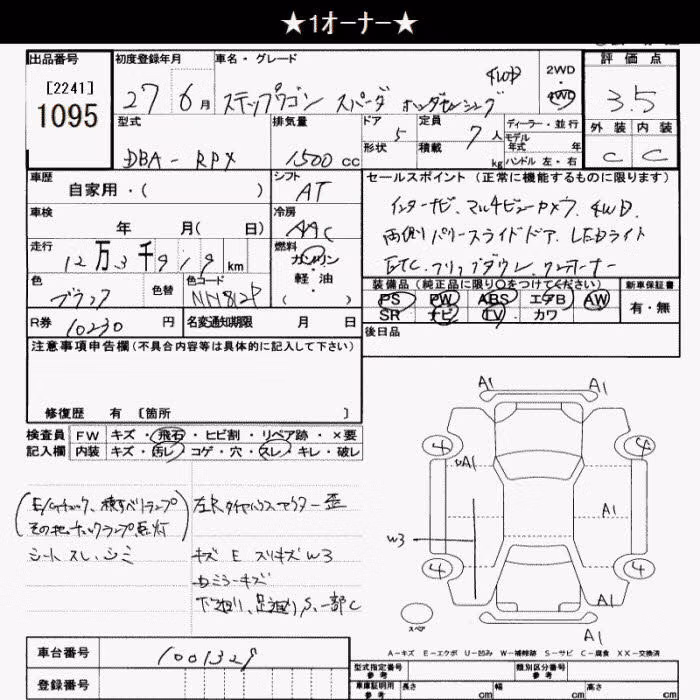 ★1オーナー★
出品番号 初度登録年月 車名・グレード 2WD 評価点
[2241] 27 6月 ステップワゴン スパーダ ホンダセンシング 4WD 4WD 3.5
1095
型式 排気量 ドア 5 定員 7人 ディーラー・並行 外装 内装
モデル年式 年
DBA-RPX 1500cc 形状 積載 kg ハンドル 左・右 C C
車歴 シフト セールスポイント (正常に機能するものに限ります)
自家用・( ) AT
車検 冷房 インターナビ、マルチビューカメラ、4WD
年 月( 日) AAC
走行 12万3千919km 燃料 ガソリン・軽油・( ) 両側パワースライドドア、LEDライト
ETC、フリップダウン、ワンオーナー
色 色替 色コード 装備品 (純正品に限り○をつけてください) 新車保証書
ブラック NH812P PS PW ABS エアB AW 有・無
R券 10230円 名変通知期限 月 日 SR ナビ TV カワ
注意事項申告欄 (不具合内容等は具体的に記入して下さい) 後日品
修復歴 有 [箇所 ]
検査員 FW キズ・飛石・ヒビ割・リペア跡・×要
記入欄 内装 キズ・汚レ・コゲ・穴・スレ・キレ・破レ
E/Gチェック、横すべりランプ
その他チェックランプ点灯
シートスレ、シミ
キズ E スリキズ W3
ミラーキズ
下廻り、足廻りS、一部C
A1 A1
4 4
A1
A1
W3
4 4
A1
A1
スペア
A-キズ E-エクボ U-凹み W-補修跡 S-サビ C-腐食 XX-交換済
車台番号 1001329
登録番号
型式指定番号 参考 類別区分番号 参考
車庫証明用 参考 長さ cm 幅 cm 高さ cm